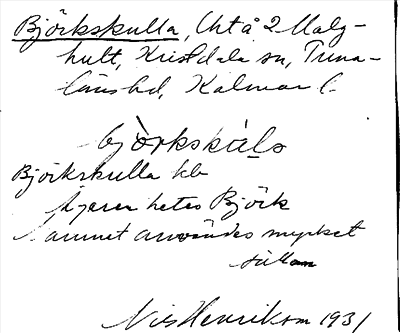 Björkskulla, Cht å 2 Malg-
hult, Kristdala sn, Tuna-
läns hd, Kalmar l.
björkskúla
Björkskulla kb
ägaren hetes Björk
namnet användes mycket
sällan
Nils Henrikson 1931